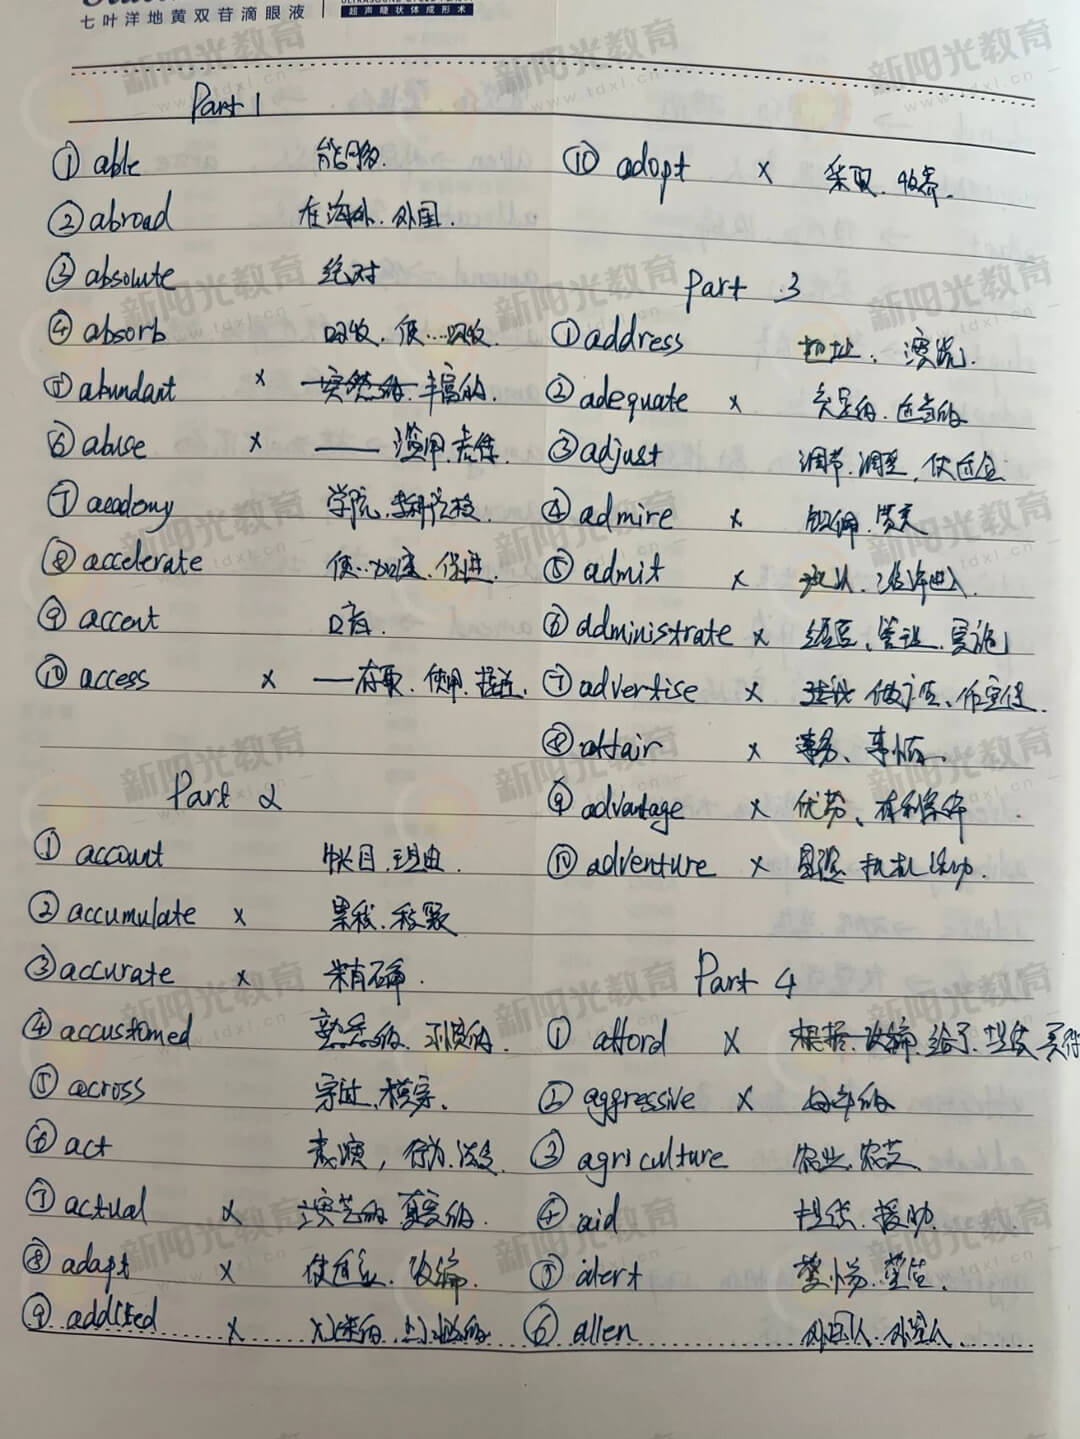 七叶洋地黄双苷滴眼液
超声睫状体成形术
Part 1
① able 能够.
② abroad 在海外. 外国.
③ absolute 绝对
④ absorb 吸收. 使…吸收.
⑤ abundant × 突然的. 丰富的.
⑥ abuse × 滥用. 虐待.
⑦ academy 学院.
⑧ accelerate 使…加速. 促进.
⑨ accent 口音.
⑩ access × 存取. 使用. 接近.
Part 2
① account 帐目. 理由.
② accumulate × 累积. 积聚
③ accurate × 精确.
④ accustomed 熟悉的. 习惯的.
⑤ across 穿过. 横穿.
⑥ act 表演, 行为.
⑦ actual × 真实的.
⑧ adapt × 使适应. 改编.
⑨ addicted × 入迷的.
⑩ adopt × 采取. 收养.
Part 3
① address 地址. 演说.
② adequate × 充足的. 适当的
③ adjust 调节. 调整. 使适合
④ admire × 钦佩. 赞美
⑤ admit × 承认. 准许进入.
⑥ administrate × 经营. 管理. 实施
⑦ advertise × 做广告. 作宣传.
⑧ affair × 事务. 事情.
⑨ advantage × 优势. 有利条件
⑩ adventure × 冒险.
Part 4
① afford × 根据. 改编. 给予. 提供. 买得
② aggressive ×
③ agriculture 农业. 农艺.
④ aid 提供. 援助.
⑤ alert 警惕. 警告.
⑥ alien 外国人. 外星人.